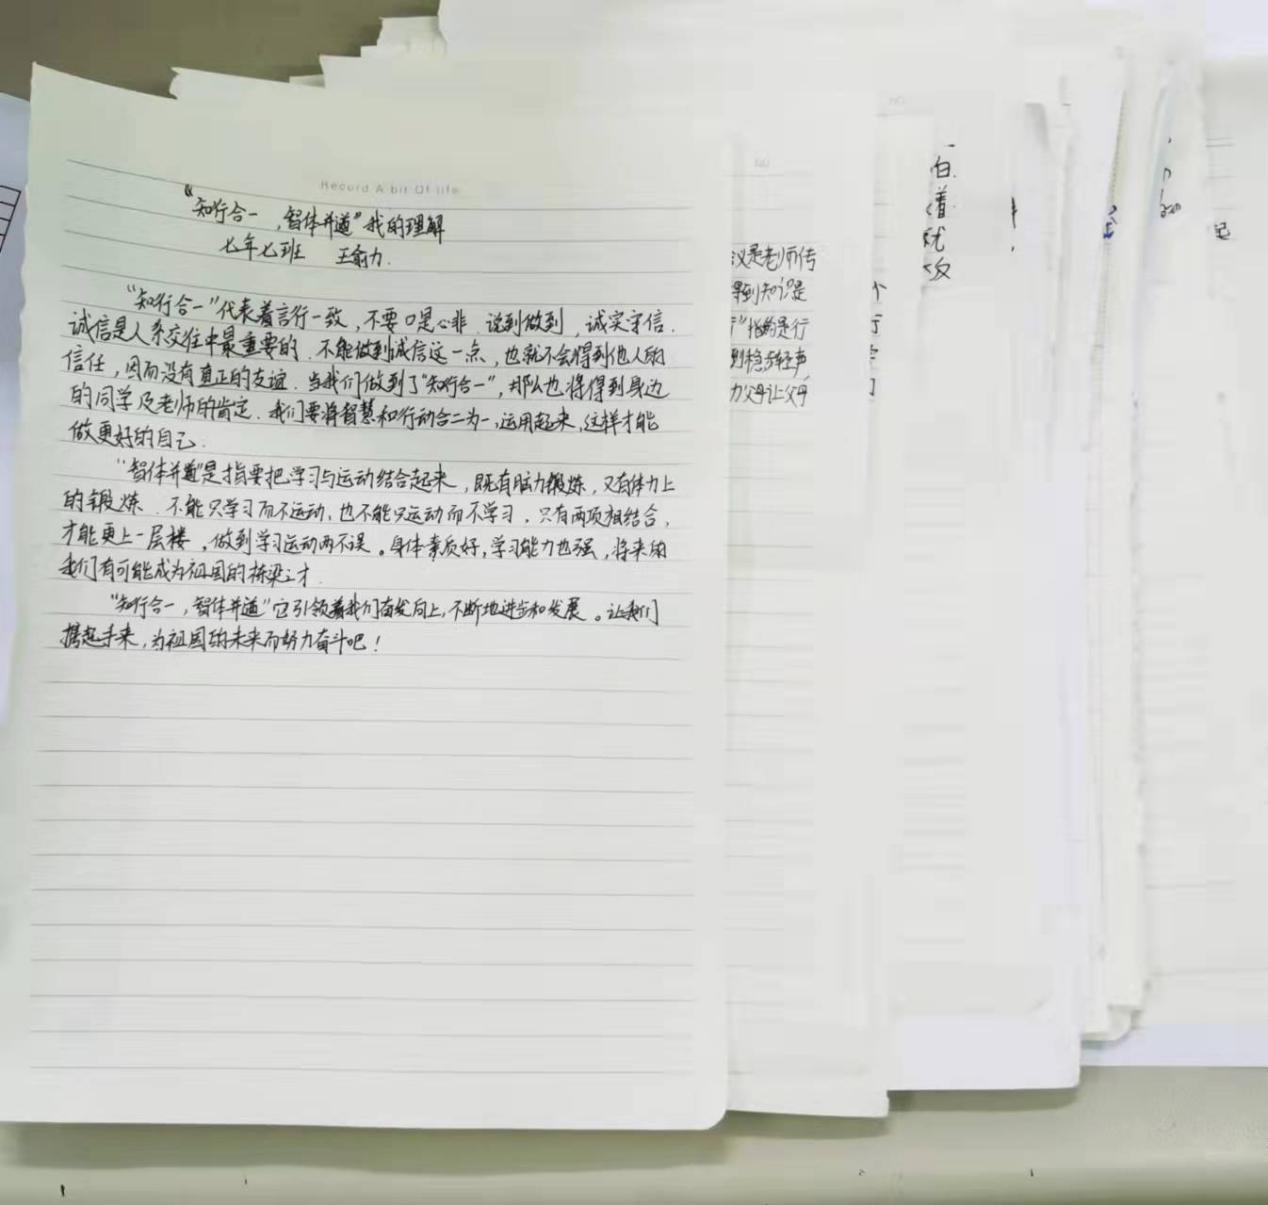 Record A bit Of life
“知行合一，智体并遒”我的理解
七年七班 王俞力.
“知行合一”代表着言行一致，不要口是心非．说到做到，诚实守信．
诚信是人系交往中最重要的．不能做到诚信这一点，也就不会得到他人的
信任，因而没有真正的友谊．当我们做到了“知行合一”，那么也将得到身边
的同学及老师的肯定．我们要将智慧和行动合二为一，运用起来，这样才能
做更好的自己．
“智体并遒”是指要把学习与运动结合起来，既有脑力锻炼，又有体力上
的锻炼．不能只学习而不运动，也不能只运动而不学习．只有两项相结合，
才能更上一层楼，做到学习运动两不误。身体素质好，学习能力也强，将来的
我们有可能成为祖国的栋梁之才．
“知行合一，智体并遒”它引领着我们奋发向上，不断地进步和发展。让我们
携起手来，为祖国的未来而努力奋斗吧！
议是老师传
得到知识是
行”指的是行
到稳步轻声
力父母让父母
个
行
习
白.
着
就
放
起